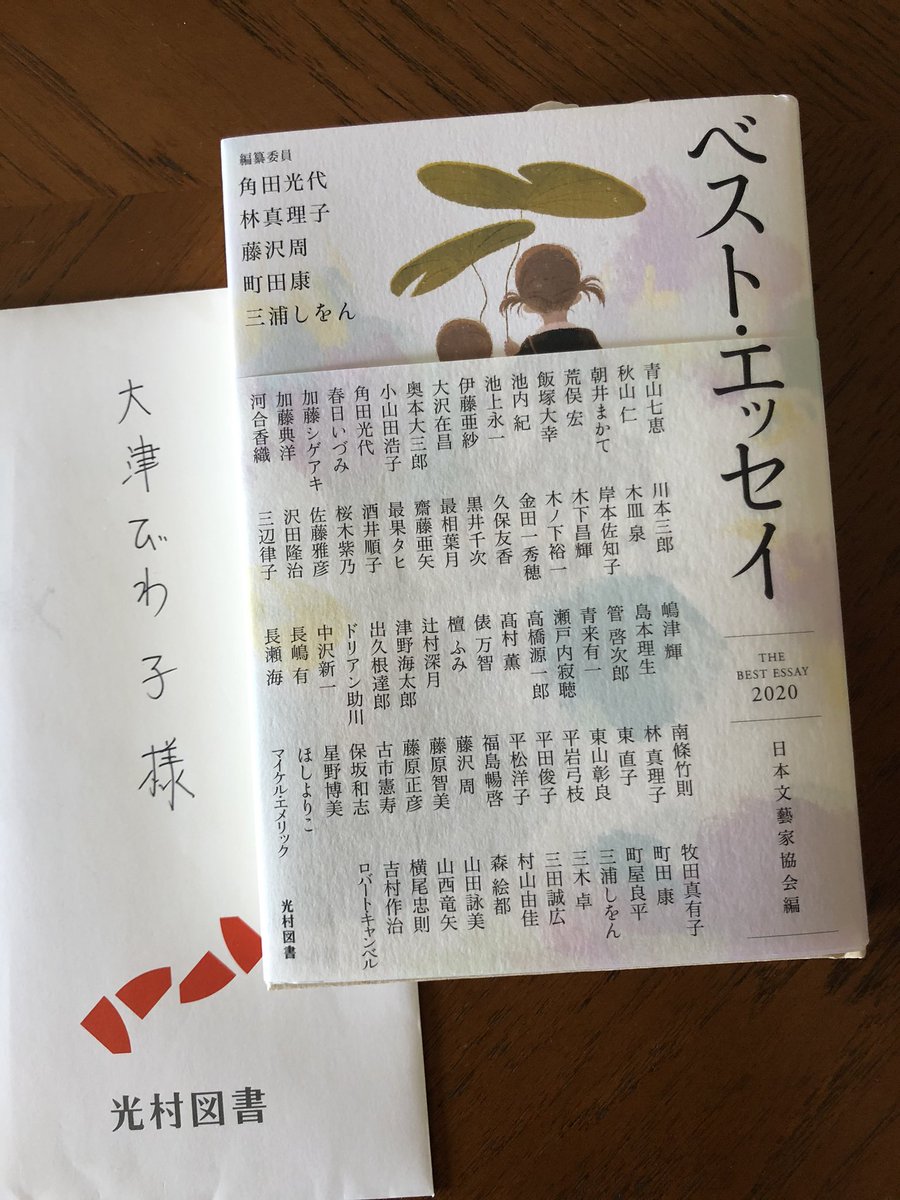 ベスト・エッセイ
THE
BEST ESSAY
2020
日本文藝家協会編
編纂委員
角田光代
林真理子
藤沢周
町田康
三浦しをん
青山七恵
秋山 仁
朝井まかて
荒俣 宏
飯塚大幸
池内 紀
池上永一
伊藤亜紗
大沢在昌
奥本大三郎
小山田浩子
角田光代
春日いづみ
加藤シゲアキ
加藤典洋
河合香織
川本三郎
木皿 泉
岸本佐知子
木下昌輝
木ノ下裕一
金田一秀穂
久保友香
黒井千次
最相葉月
齋藤亜矢
最果タヒ
酒井順子
桜木紫乃
佐藤雅彦
沢田隆治
三辺律子
嶋津 輝
島本理生
管 啓次郎
青来有一
瀬戸内寂聴
高橋源一郎
髙村 薫
俵 万智
檀 ふみ
辻村深月
津野海太郎
出久根達郎
ドリアン助川
中沢新一
長嶋 有
長瀬 海
南條竹則
林 真理子
東 直子
東山彰良
平岩弓枝
平田俊子
平松洋子
福島暢啓
藤沢 周
藤原智美
藤原正彦
古市憲寿
保坂和志
星野博美
ほしよりこ
マイケル・エメリック
牧田真有子
町田 康
町屋良平
三浦しをん
三木 卓
三田誠広
村山由佳
森 絵都
山田詠美
山西竜矢
横尾忠則
吉村作治
ロバート キャンベル
光村図書
大津びわ子様
光村図書